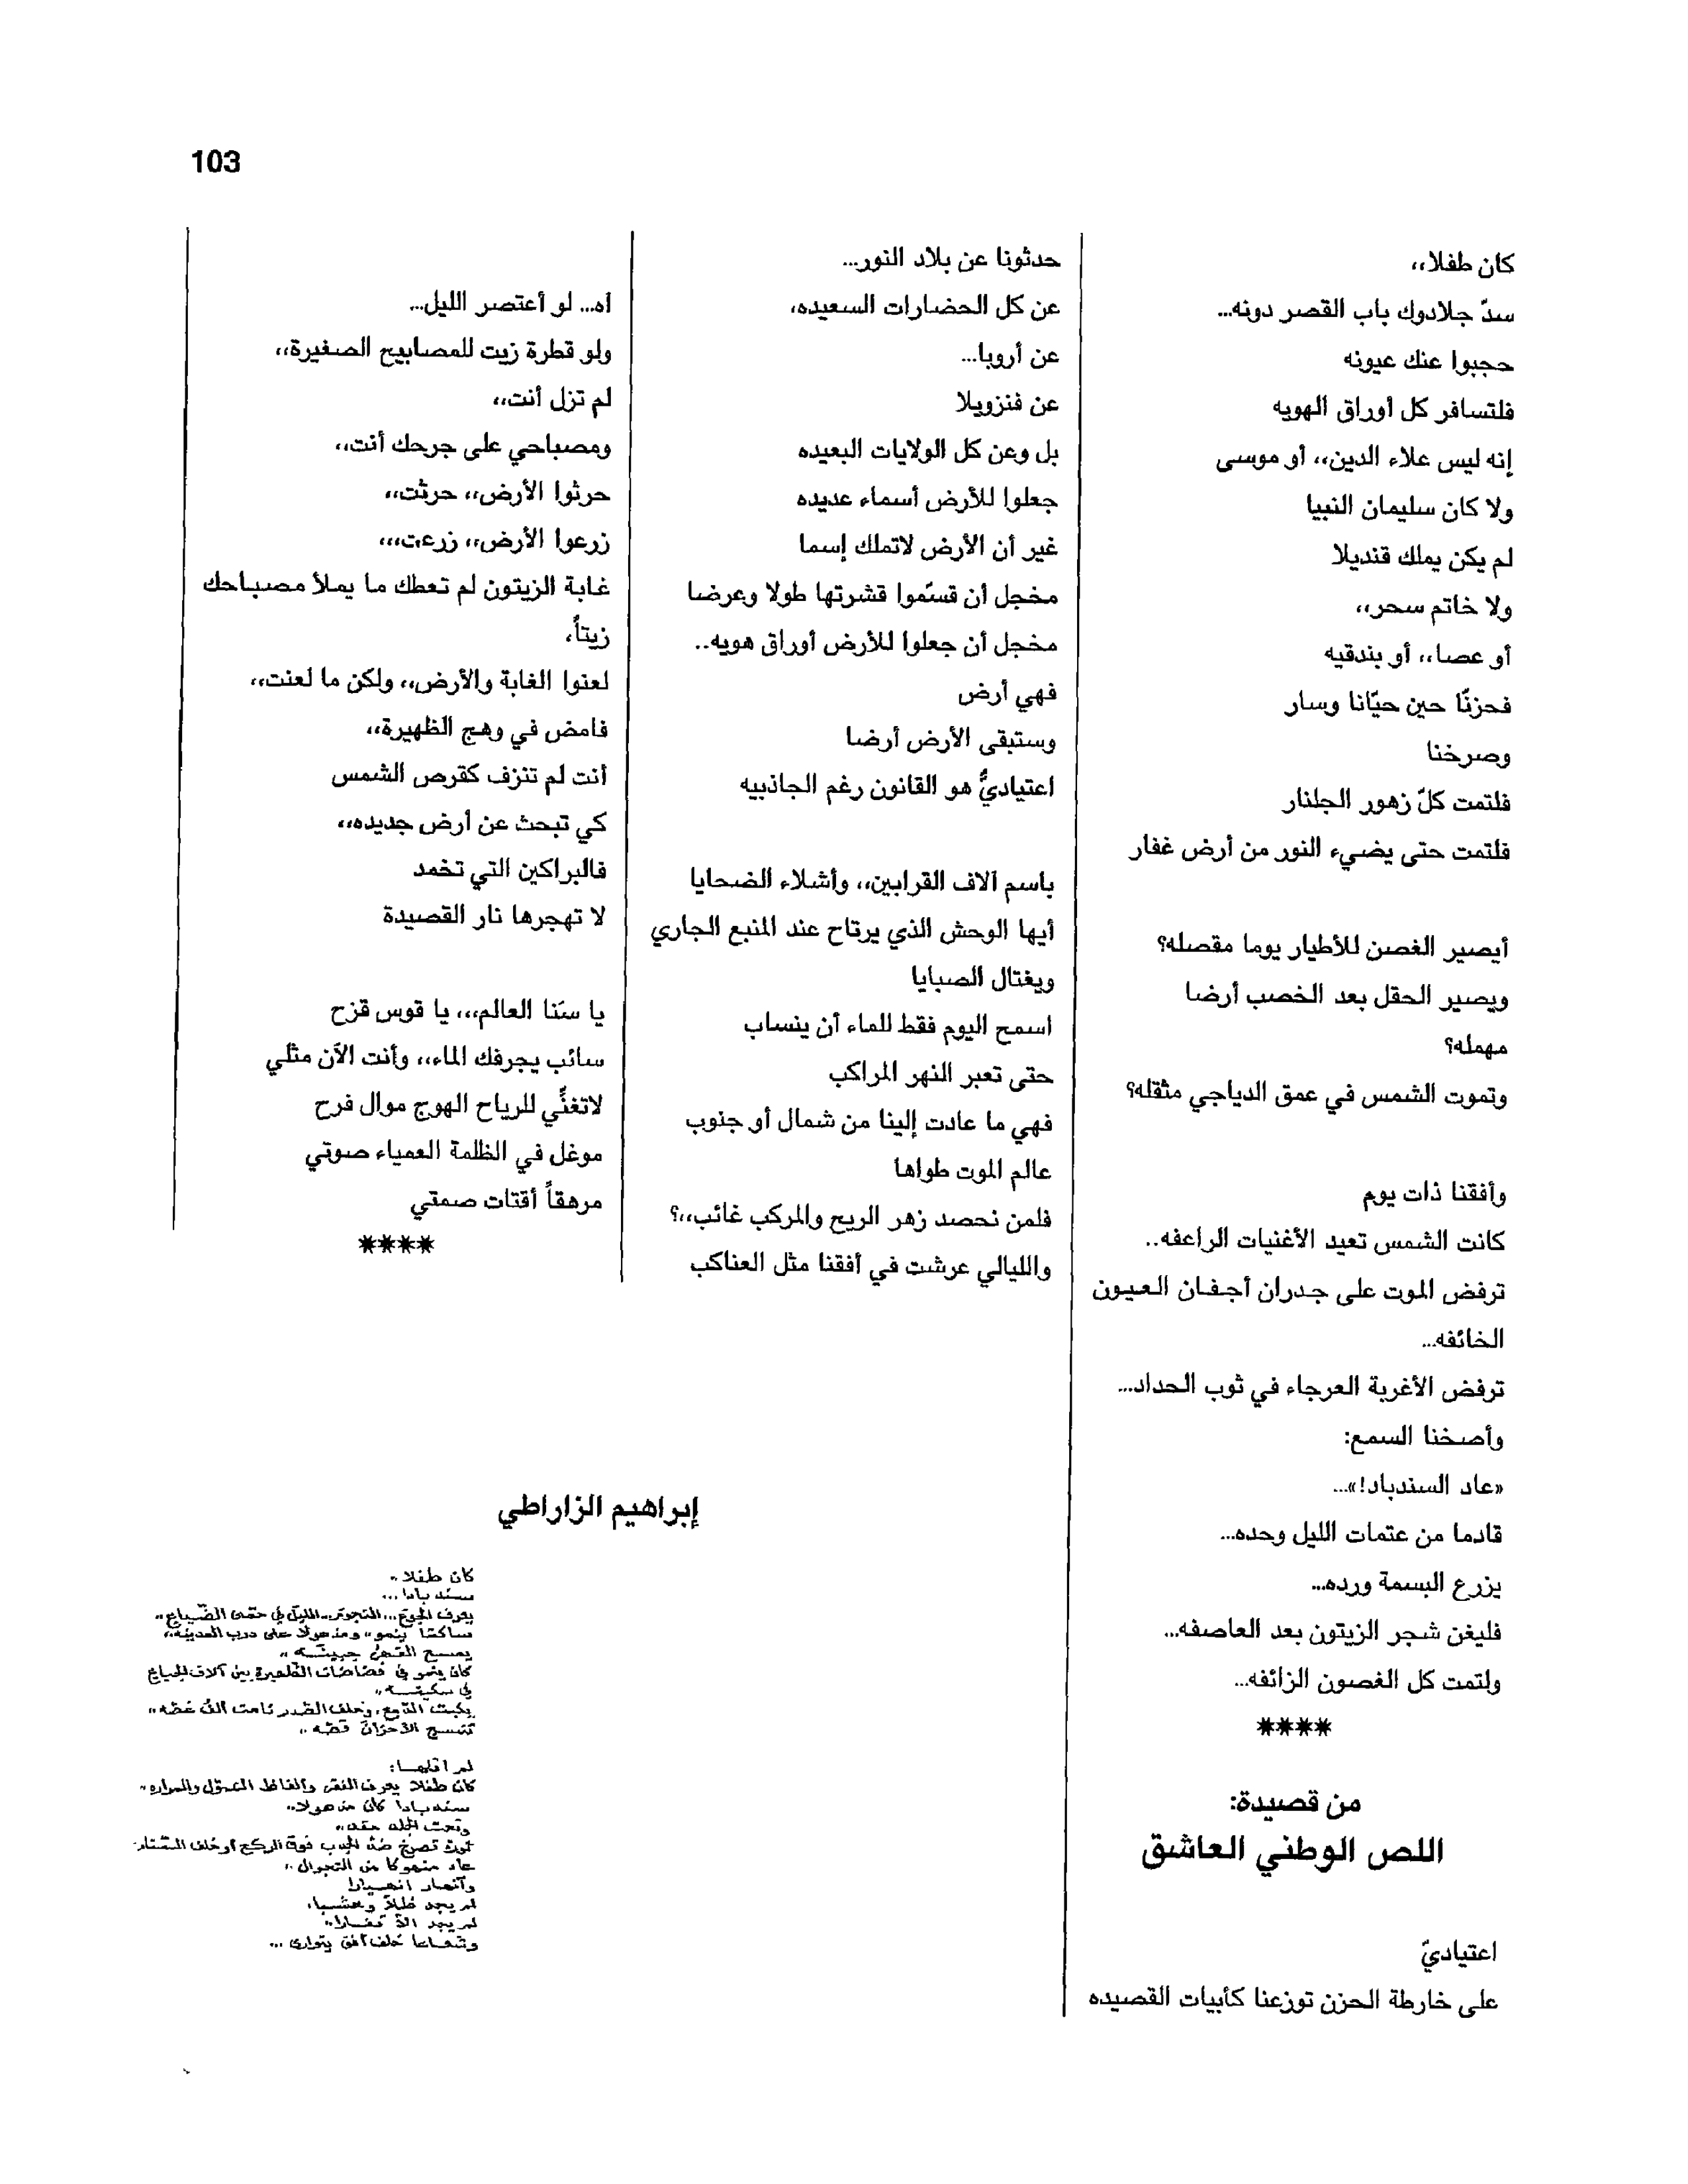 103
كان طفلا،،
سدّ جلادوك باب القصر دونه...
حجبوا عنك عيونه
فلتسافر كل أوراق الهويه
إنه ليس علاء الدين،، أو موسى
ولا كان سليمان النبيا
لم يكن يملك قنديلا
ولا خاتم سحر،،
أو عصا،، أو بندقيه
فحزنّا حين حيّانا وسار
وصرخنا
فلتمت كلّ زهور الجلنار
فلتمت حتى يضيء النور من أرض غفار
أيصير الغصن للأطيار يوما مقصله؟
ويصير الحقل بعد الخصب أرضا
مهمله؟
وتموت الشمس في عمق الدياجي مثقله؟
وأفقنا ذات يوم
كانت الشمس تعيد الأغنيات الراعفه..
ترفض الموت على جدران أجفان العيون
الخائفه...
ترفض الأغربة العرجاء في ثوب الحداد...
وأصخنا السمع:
«عاد السندباد!»...
قادما من عتمات الليل وحده...
يزرع البسمة ورده...
فليغن شجر الزيتون بعد العاصفه...
ولتمت كل الغصون الزائفه...
****
من قصيدة:
اللص الوطني العاشق
اعتياديّ
على خارطة الحزن توزعنا كأبيات القصيده
حدثونا عن بلاد النور...
عن كل الحضارات السعيده،
عن أروبا...
عن فنزويلا
بل وعن كل الولايات البعيده
جعلوا للأرض أسماء عديده
غير أن الأرض لاتملك إسما
مخجل أن قسّموا قشرتها طولا وعرضا
مخجل أن جعلوا للأرض أوراق هويه..
فهي أرض
وستبقى الأرض أرضا
اعتياديٌّ هو القانون رغم الجاذبيه
باسم آلاف القرابين،، وأشلاء الضحايا
أيها الوحش الذي يرتاح عند المنبع الجاري
ويغتال الصبايا
اسمح اليوم فقط للماء أن ينساب
حتى تعبر النهر المراكب
فهي ما عادت إلينا من شمال أو جنوب
عالم الموت طواها
فلمن نحصد زهر الريح والمركب غائب،،؟
والليالي عرشت في أفقنا مثل العناكب
آه... لو أعتصر الليل...
ولو قطرة زيت للمصابيح الصغيرة،،
لم تزل أنت،،
ومصباحي على جرحك أنت،،
حرثوا الأرض،، حرثت،،
زرعوا الأرض،، زرعت،،،
غابة الزيتون لم تعطك ما يملأ مصباحك
زيتاً،
لعنوا الغابة والأرض،، ولكن ما لعنت،،
فامض في وهج الظهيرة،،
أنت لم تنزف كقرص الشمس
كي تبحث عن أرض جديده،،
فالبراكين التي تخمد
لا تهجرها نار القصيدة
يا سنا العالم،،، يا قوس قزح
سائب يجرفك الماء،، وأنت الآن مثلي
لاتغنِّي للرياح الهوج موال فرح
موغل في الظلمة العمياء صوتي
مرهقاً أقتات صمتي
****
إبراهيم الزاراطي
كان طفلا،،
سندبادا...
يعرف الجوع... التجوّل... الليل في حقد الضّباع،،
ساكتا ينمو،، ومذهولا على درب المدينة،،
يمسح القهر جبينـه،،
كان ينمو في فضاضات الظهيرة بين آلاف الجياع
في سكينـه،،
يكبت الدّمع، وخلف الصّدر ناحت ألف غصّه،،
تنسج الأحزان قصّه،،
لم أقلهـا:
كان طفلا يعرف الفقر وألفاظ التسوّل والمراره،،
سندبادا كان مذهولا،،
وتحت الجلد حقد،،
عاد منهوكا من التجوال،،
وانهار انهيارا
لم يجد ظلاّ وعشبا،
لم يجد الاّ قفارا،،
وشعاعا خلف أفق يتوارى...